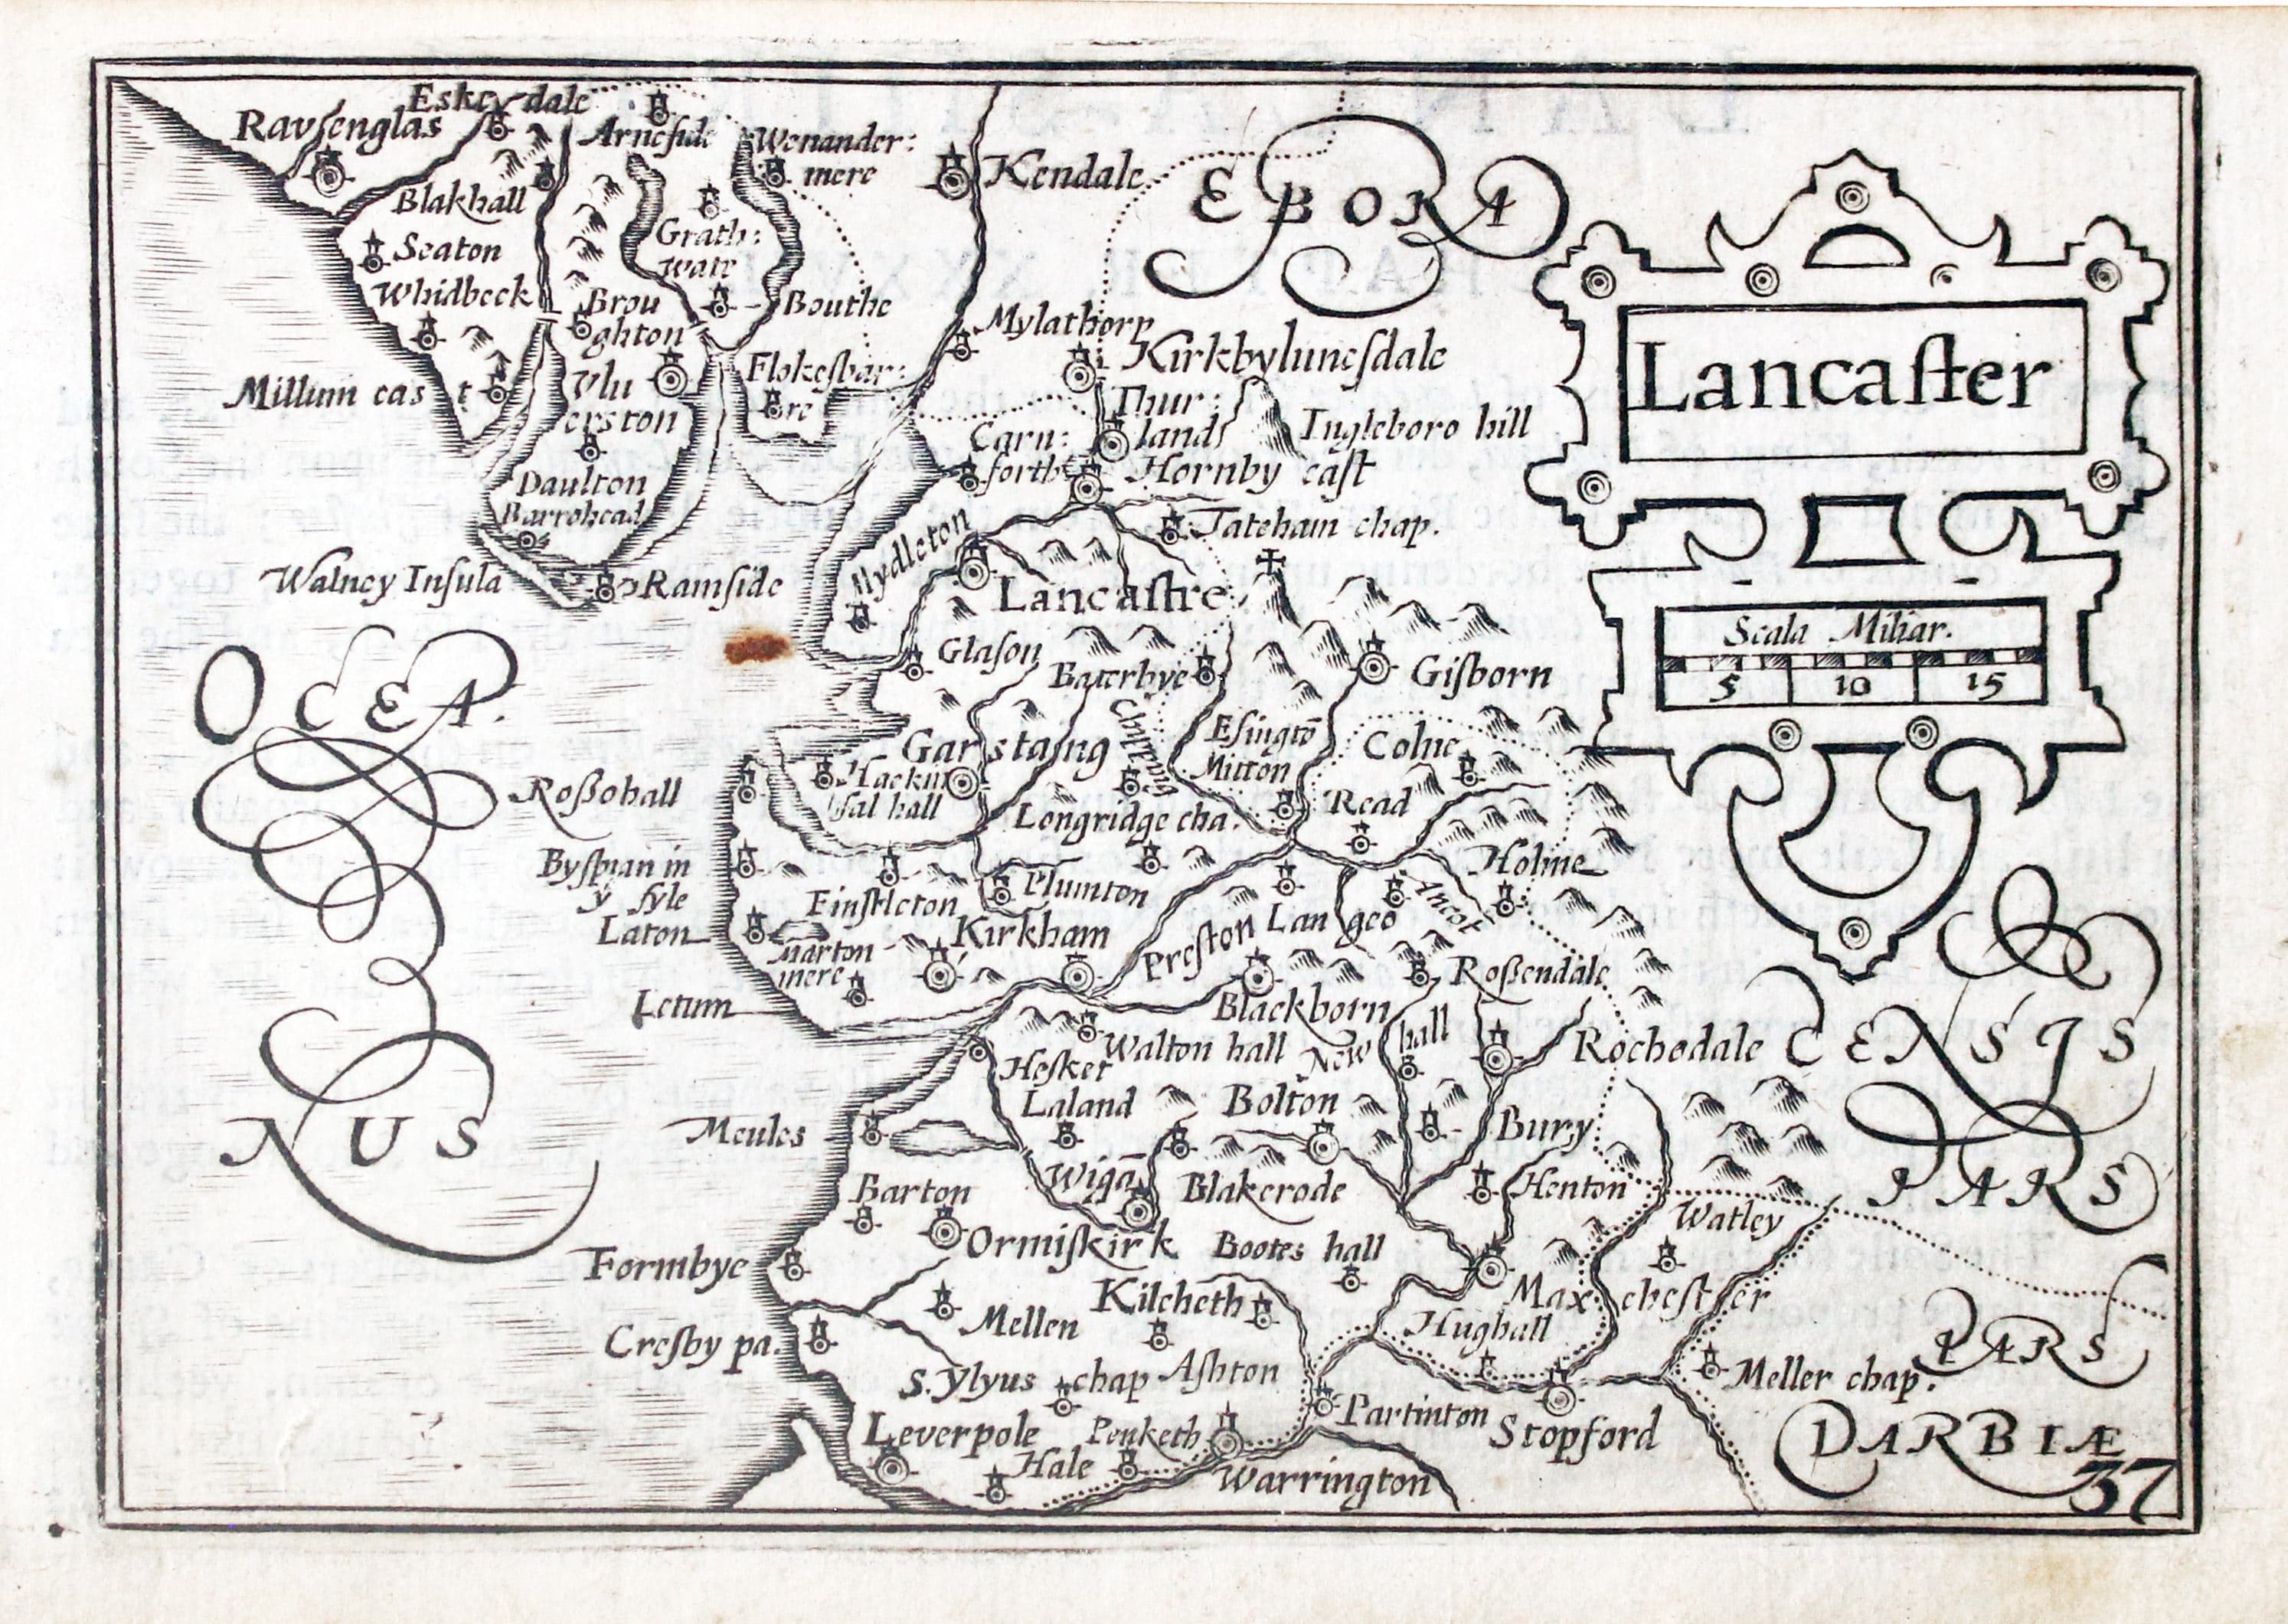 Eskeydale
Ravſenglas
Arneſide
Wenander:
mere
Kendale
EBORA
Blakhall
Grath:
wait
Seaton
Whidbeck
Brou
ghton
Bouthe
Mylathorp
Kirkbyluneſdale
Lancaſter
Millum caſt
Vlu
erston
Flokeſbar:
Bre
Thur:
land
Ingleboro hill
Carn:
forth
Hornby caſt
Daulton
Barrohead
Mydleton
Tateham chap.
Walney Inſula
Ramſide
Lancaſtre
Scala Miliar.
5 10 15
Glaſon
Baterbye
Giſborn
OCEA.
Chipping
Eſingtō
Garstang
Mitton
Colne
Roßohall
Hackin
ſal hall
Longridge cha.
Read
Byſpian in
ẏ ſyle
Plumton
Holme
Laton
Einſtleton
Kirkham
Preſton
Langeo
Ancot
Marton
mere
Roßendale
Letum
Blackborn
Walton hall
New hall
Rochedale
CENSIS
Heſket
Laland
Bolton
Meules
Bury
NUS
Wigā
Blakerode
Henton
PARS
Barton
Watley
Ormiſkirk
Bootes hall
Formbye
Kilcheth
Manchestſer
Mellen
Hughall
Creſby pa.
PARS
S. Ylyus chap
Aſhton
Meller chap.
Partinton
Leverpole
Penketh
Stopford
DARBIÆ
Hale
Warrington
37